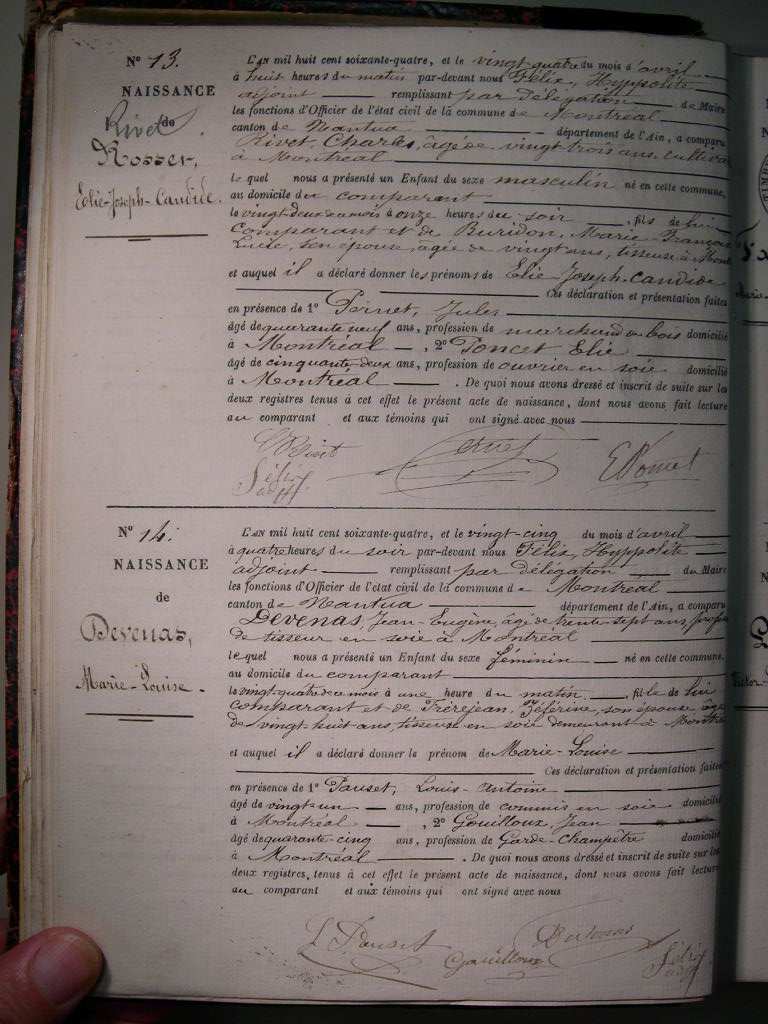 N° 13.
NAISSANCE
de
Rivet
Rosser,
Elie-Joseph-Candide.
L'AN mil huit cent soixante-quatre, et le vingt-quatre du mois d'avril
à huit heures du matin par-devant nous Félix, Hyppolite
adjoint remplissant par délégation de Maire
les fonctions d'Officier de l'état civil de la commune de Montréal
canton de Nantua département de l'Ain, a comparu
Rivet, Charles, âgé de vingt trois ans, cultiva
à Montréal
lequel nous a présenté un Enfant du sexe masculin né en cette commune,
au domicile du comparant
le vingt-deux à onze heures du soir, fils de lui
comparant et de Buridon, Marie-Françoi
Lucie, son épouse, âgée de vingt ans, tisseuse à Mont
et auquel il a déclaré donner les prénoms de Elie-Joseph-Candide
Ces déclaration et présentation faites
en présence de 1° Pernet, Jules
âgé de quarante neuf ans, profession de marchand de bois domicilié
à Montréal, 2° Poncet Elie
âgé de cinquante-deux ans, profession de ouvrier en soie domicilié
à Montréal. De quoi nous avons dressé et inscrit de suite sur les
deux registres tenus à cet effet le présent acte de naissance, dont nous avons fait lecture
au comparant et aux témoins qui ont signé avec nous
C Rivet Pernet E Poncet
Félix
adj
N° 14.
NAISSANCE
de
Devenas,
Marie-Louise.
L'AN mil huit cent soixante-quatre, et le vingt-cinq du mois d'avril
à quatre heures du soir par-devant nous Félix, Hyppolite
adjoint remplissant par délégation du Maire
les fonctions d'Officier de l'état civil de la commune de Montréal
canton de Nantua département de l'Ain, a comparu
DEVENAS, Jean-Eugène, âgé de trente-sept ans, profes
de tisseur en soie à Montréal
lequel nous a présenté un Enfant du sexe féminin né en cette commune,
au domicile du comparant
le vingt-quatre ce mois à une heure du matin, fille de lui
comparant et de Frèrejean, Zéférine, son épouse âgée
de vingt-huit ans, tisseuse en soie demeurant à Montré
et auquel il a déclaré donner le prénom de Marie-Louise
Ces déclaration et présentation faites
en présence de 1° Pauset, Louis-Antoine
âgé de vingt-un ans, profession de commis en soie domicilié
à Montréal, 2° Gouilloux, Jean
âgé de quarante-cinq ans, profession de Garde-champêtre domicilié
à Montréal. De quoi nous avons dressé et inscrit de suite sur les
deux registres, tenus à cet effet le présent acte de naissance, dont nous avons fait lecture
au comparant et aux témoins qui ont signé avec nous
L Pauset Gouilloux Devenas Félix
adj